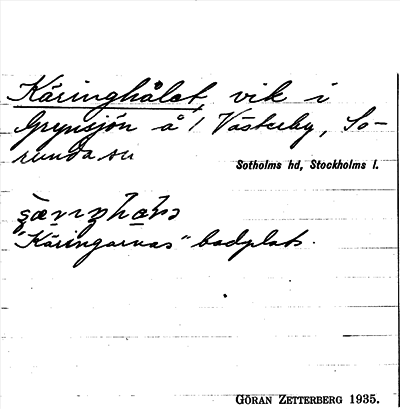 Käringhålet, vik i
Grynsjön å 1 Västerby, So-
runda sn
Sotholms hd, Stockholms l.
"Käringarnas" badplats.
GÖRAN ZETTERBERG 1935.